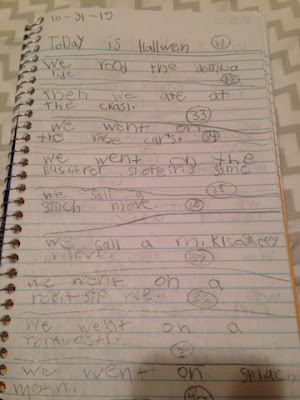 10-31-15
ToDay is Hallwen (31)
We rood the dombo
ride. (32)
Then we ate at
the casl. (33)
we went on
the race cars. (34)
we went on the
Busitrer shoteing game
we sall a (35)
stich move.
we call a
move. (37)
we went on a
rokit sip ride.
we went on a
we went on splach
motn.